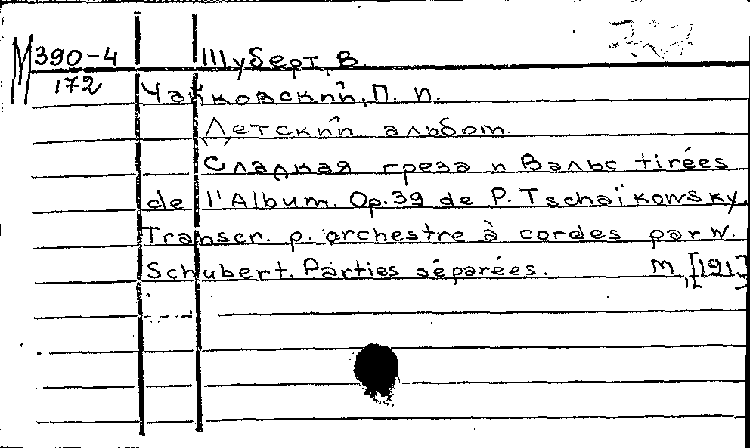 М390-4 Шуберт, В.
172 Чайковский, П. И.
Детский альбом.
Сладкая греза и Вальс tirées
de l'Album. Op. 39 de P. Tschaïkowsky.
Transcr. p. orchestre à cordes par W.
Schubert. Parties séparées. М, [191]